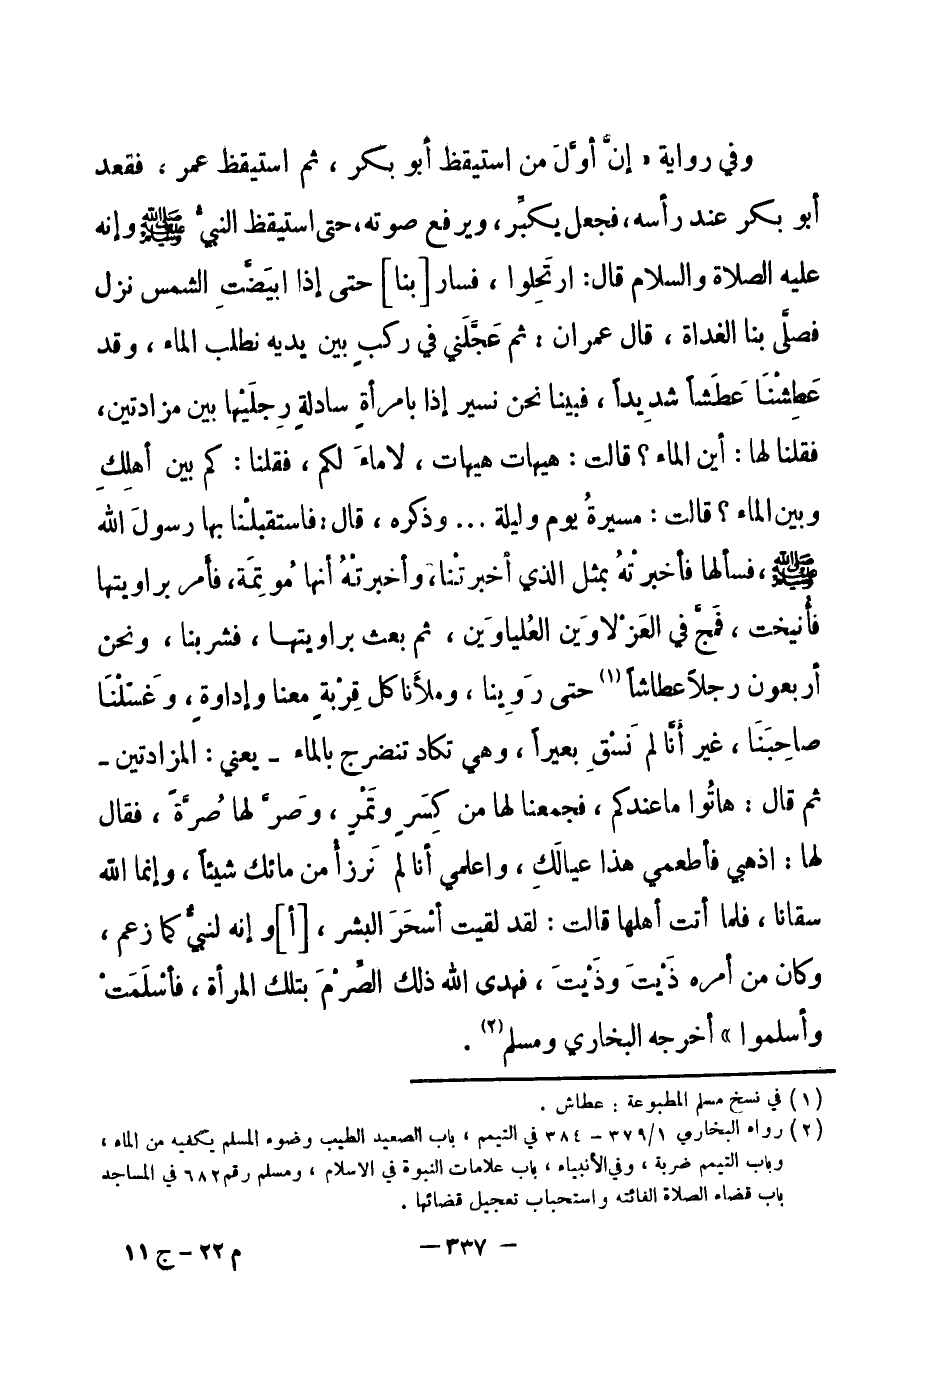 وفي رواية « إنَّ أوَّلَ من استيقظ أبو بكر ، ثم استيقظ عمر ، فقعد
أبو بكر عند رأسه، فجعل يكبِّر، ويرفع صوته، حتى استيقظ النبيُّ ﷺ وإنه
عليه الصلاة والسلام قال: ارتَحِلوا ، فسار [بنا] حتى إذا ابيَضَّتِ الشمس نزل
فصلَّى بنا الغداة ، قال عمران : ثم عَجَّلَني في ركبٍ بين يديه نطلب الماء ، وقد
عَطِشْنَا عَطَشاً شديداً ، فبينا نحن نسير إذا بامرأةٍ سادلةٍ رِجلَيْها بين مزادتين،
فقلنا لها : أين الماء ؟ قالت : هيهات هيهات ، لاماءَ لكم ، فقلنا : كم بين أهلِكِ
وبين الماء ؟ قالت : مسيرةُ يوم وليلة ... وذكره ، قال: فاستقبلْنا بها رسولَ الله
ﷺ، فسألها فأخبرتْهُ بمثل الذي أخبرتْنا، وأخبرتْهُ أنها مُوتِمَة، فأمر براويتها
فأُنيخت ، فمَجَّ في العَزْلاوَين العُلياوَين ، ثم بعث براويتها ، فشربنا ، ونحن
أربعون رجلاً عطاشاً (١) حتى رَوِينا ، وملأنا كل قِرْبةٍ معنا وإداوةٍ ، وغَسَّلْنَا
صاحِبَنَا ، غير أنَّا لم نَسْقِ بعيراً ، وهي تكاد تنضرج بالماء - يعني : المزادتين -
ثم قال : هاتُوا ماعندكم ، فجمعنا لها من كِسَرٍ وتَمْرٍ ، وصَرَّ لها صُرَّةً ، فقال
لها : اذهبي فأطعمي هذا عيالَكِ ، واعلمي أنا لم نَرزأْ من مائك شيئاً ، وإنما الله
سقانا ، فلما أتت أهلها قالت : لقد لقيت أسْحَرَ البشر ، [أ]و إنه لنبيٌّ كما زعم ،
وكان من أمره ذَيْتَ وذَيْتَ ، فهدى الله ذلك الصِّرْمَ بتلك المرأة ، فأسْلَمَتْ
وأسلموا » أخرجه البخاري ومسلم (٢) .
(١) في نسخ مسلم المطبوعة : عطاش .
(٢) رواه البخاري ٣٧٩/١ - ٣٨٤ في التيمم ، باب الصعيد الطيب وضوء المسلم يكفيه من الماء ،
وباب التيمم ضربة ، وفي الأنبياء ، باب علامات النبوة في الاسلام ، ومسلم رقم ٦٨٢ في المساجد
باب قضاء الصلاة الفائته واستحباب تعجيل قضائها .
- ٣٣٧ -
م ٢٢ - ج ١١